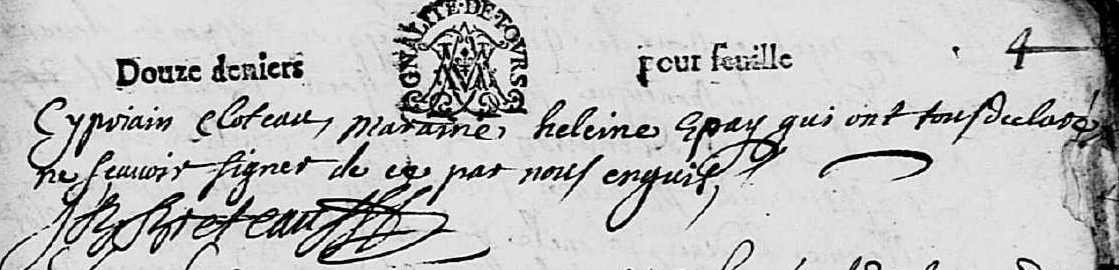 GNALITE·DE·TOVRS
Douze deniers pour feuille 4
Cypriain Cloteau, maraine, heleine Epay qui ont tous declaré
ne scauoir signer de ce par nous enquis,
Breteau